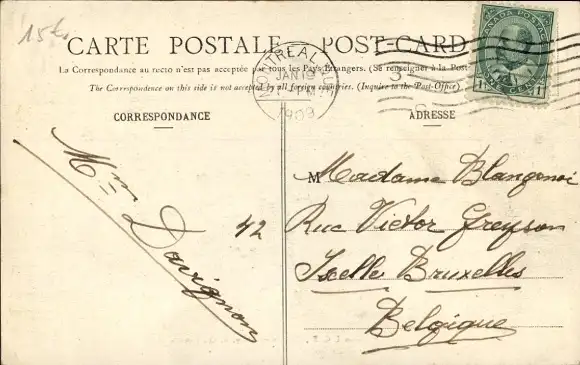 15€
CARTE POSTALE POST-CARD
La Correspondance au recto n'est pas acceptée par tous les Pays Étrangers. (Se renseigner à la Poste
The Correspondence on this side is not accepted by all foreign countries. (Inquire to the Post-Office)
MONTREAL, QUE
JAN 19
PM
1909
CANADA POSTAGE
1 ONE CENT 1
CORRESPONDANCE
ADRESSE
Mme Davignon
Madame Blangenoi
42 Rue Victor Greyson
Ixelles Bruxelles
Belgique